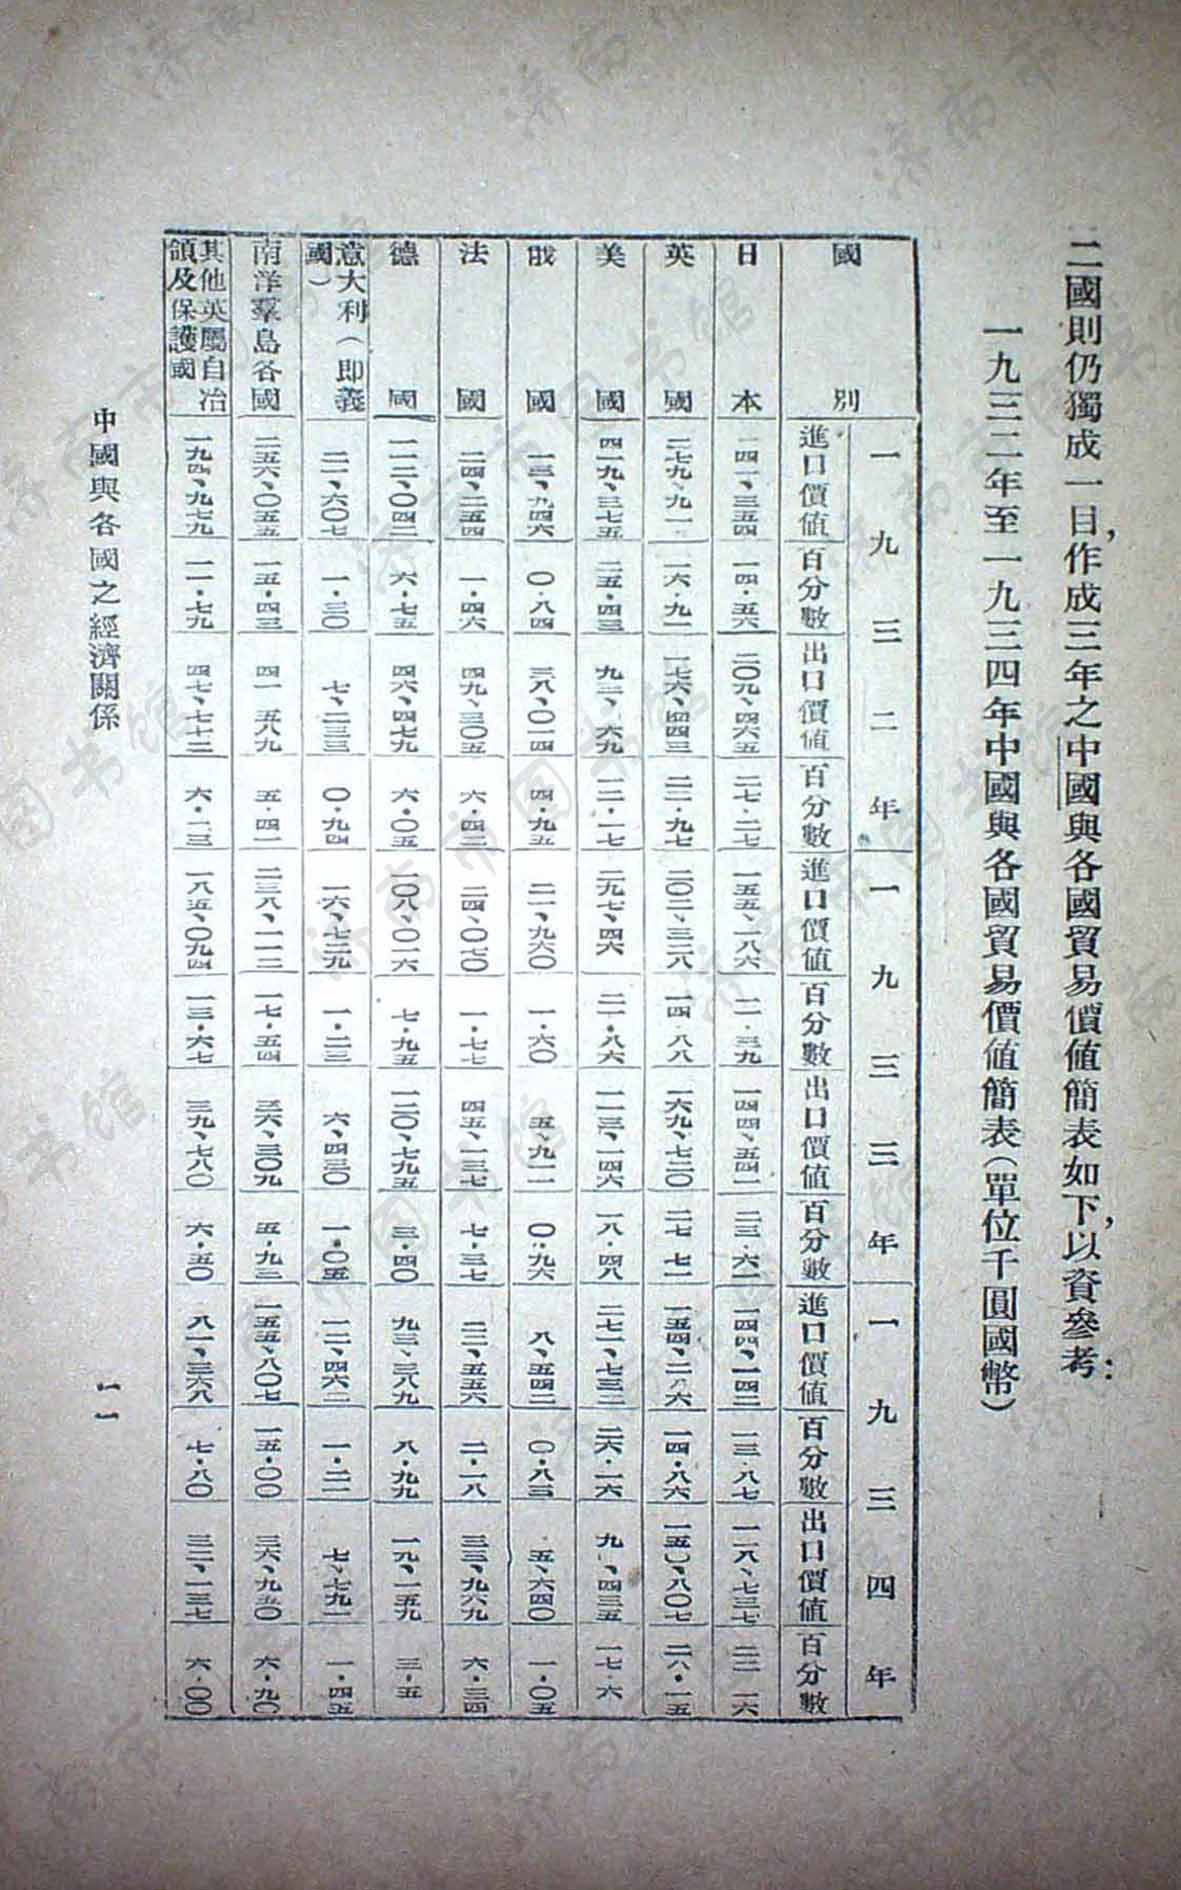 二國則仍獨成一目，作成三年之中國與各國貿易價值簡表如下，以資參考：
一九三二年至一九三四年中國與各國貿易價值簡表（單位千圓國幣）
國別 一九三二年 一九三三年 一九三四年
進口價值 百分數 出口價值 百分數 進口價值 百分數 出口價值 百分數 進口價值 百分數 出口價值 百分數
日本 一四·五六 二〇九、四六五 二七·二七 一五五、一八六 一一·三九 一四四、五四一 二三·六一 一四四、一四二 一三·八七 一一八、七三七
英國 一六·九一 一七六、四四三 二二·九七 二〇二、三二八 一六九、七二〇
美國 四一九、三七五 二五·四三 一二·一七 二一·八六 一一三、一四六 一八·四八 二七一、七三二 二六·一六
俄國 一三、九四六 〇·八四 三八、〇一四 四·九五 二一、九六〇 一·六〇 五、九一一 〇·九六 八、五四二 〇·八三 五、六四〇 一·〇五
法國 二四、二五四 一·四六 四九、三〇五 六·四二 二四、〇七〇 一·七七 四五、一三七 七·三七 二二、五五六 二·一八 三三、九六九 六·三四
德國 一一二、〇四二 六·七五 四六、四七九 六·〇五 一〇八、〇一六 七·九五 三·四〇 九三、三八九 八·九九 一九、一五九
意大利（即義國） 二一、六〇七 一·三〇 七、二三三 〇·九四 一六、七二九 一·二三 六、四三〇 一·〇五 一二、四六二 一·二一 七、七九一 一·四五
南洋羣島各國 二五六、〇五五 一五·四三 五·四一 二三八、一一二 一七·五四 三六、三〇九 五·九三 一五五、八〇七 一五·〇〇 三六、九五〇 六·九〇
其他英屬自治領及保護國 一九四、九七九 一一·七九 四七、七七二 六·二三 一八五、〇九四 一三·六七 三九、七八〇 六·五〇 八一、三六八 七·八〇 三二、一三七 六·〇〇
中國與各國之經濟關係
一一
书馆
济南市图书馆